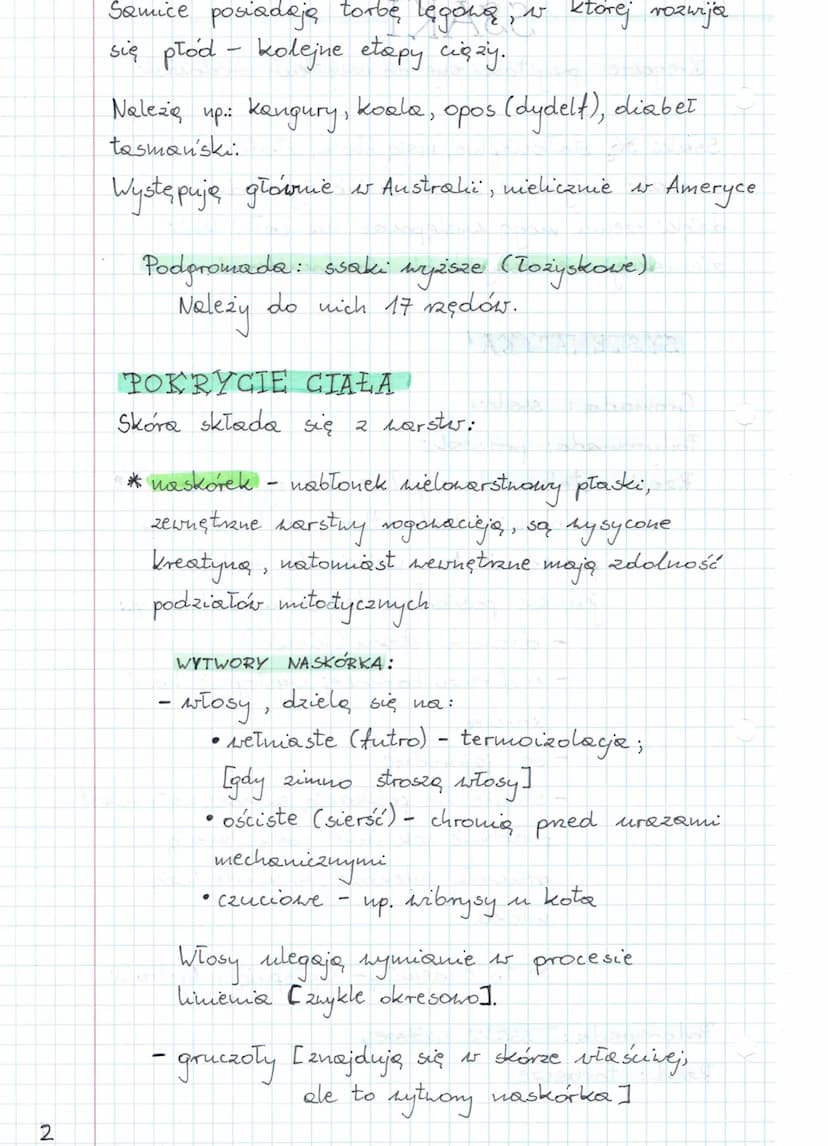 Samice posiadają torbę lęgową, w której rozwija
się płód - kolejne etapy ciąży.
Należą np.: kangury, koala, opos (dydelf), diabeł
tasmański.
Występują głównie w Australii, nielicznie w Ameryce
Podgromada: ssaki wyższe (łożyskowe)
Należy do nich 17 rzędów.
POKRYCIE CIAŁA
Skóra składa się z warstw:
* naskórek - nabłonek wielowarstwowy płaski,
zewnętrzne warstwy rogowacieją, są wysycone
kreatyną, natomiast wewnętrzne mają zdolność
podziałów mitotycznych
WYTWORY NASKÓRKA:
- włosy, dzielą się na:
• wełniaste (futro) - termoizolacja;
[gdy zimno stroszą włosy]
• ościste (sierść) - chronią przed urazami
mechanicznymi
• czuciowe - np. wibrysy u kota
Włosy ulegają wymianie w procesie
linienia [zwykle okresowo].
- gruczoły [znajdują się w skórze właściwej,
ale to wytwory naskórka]
2